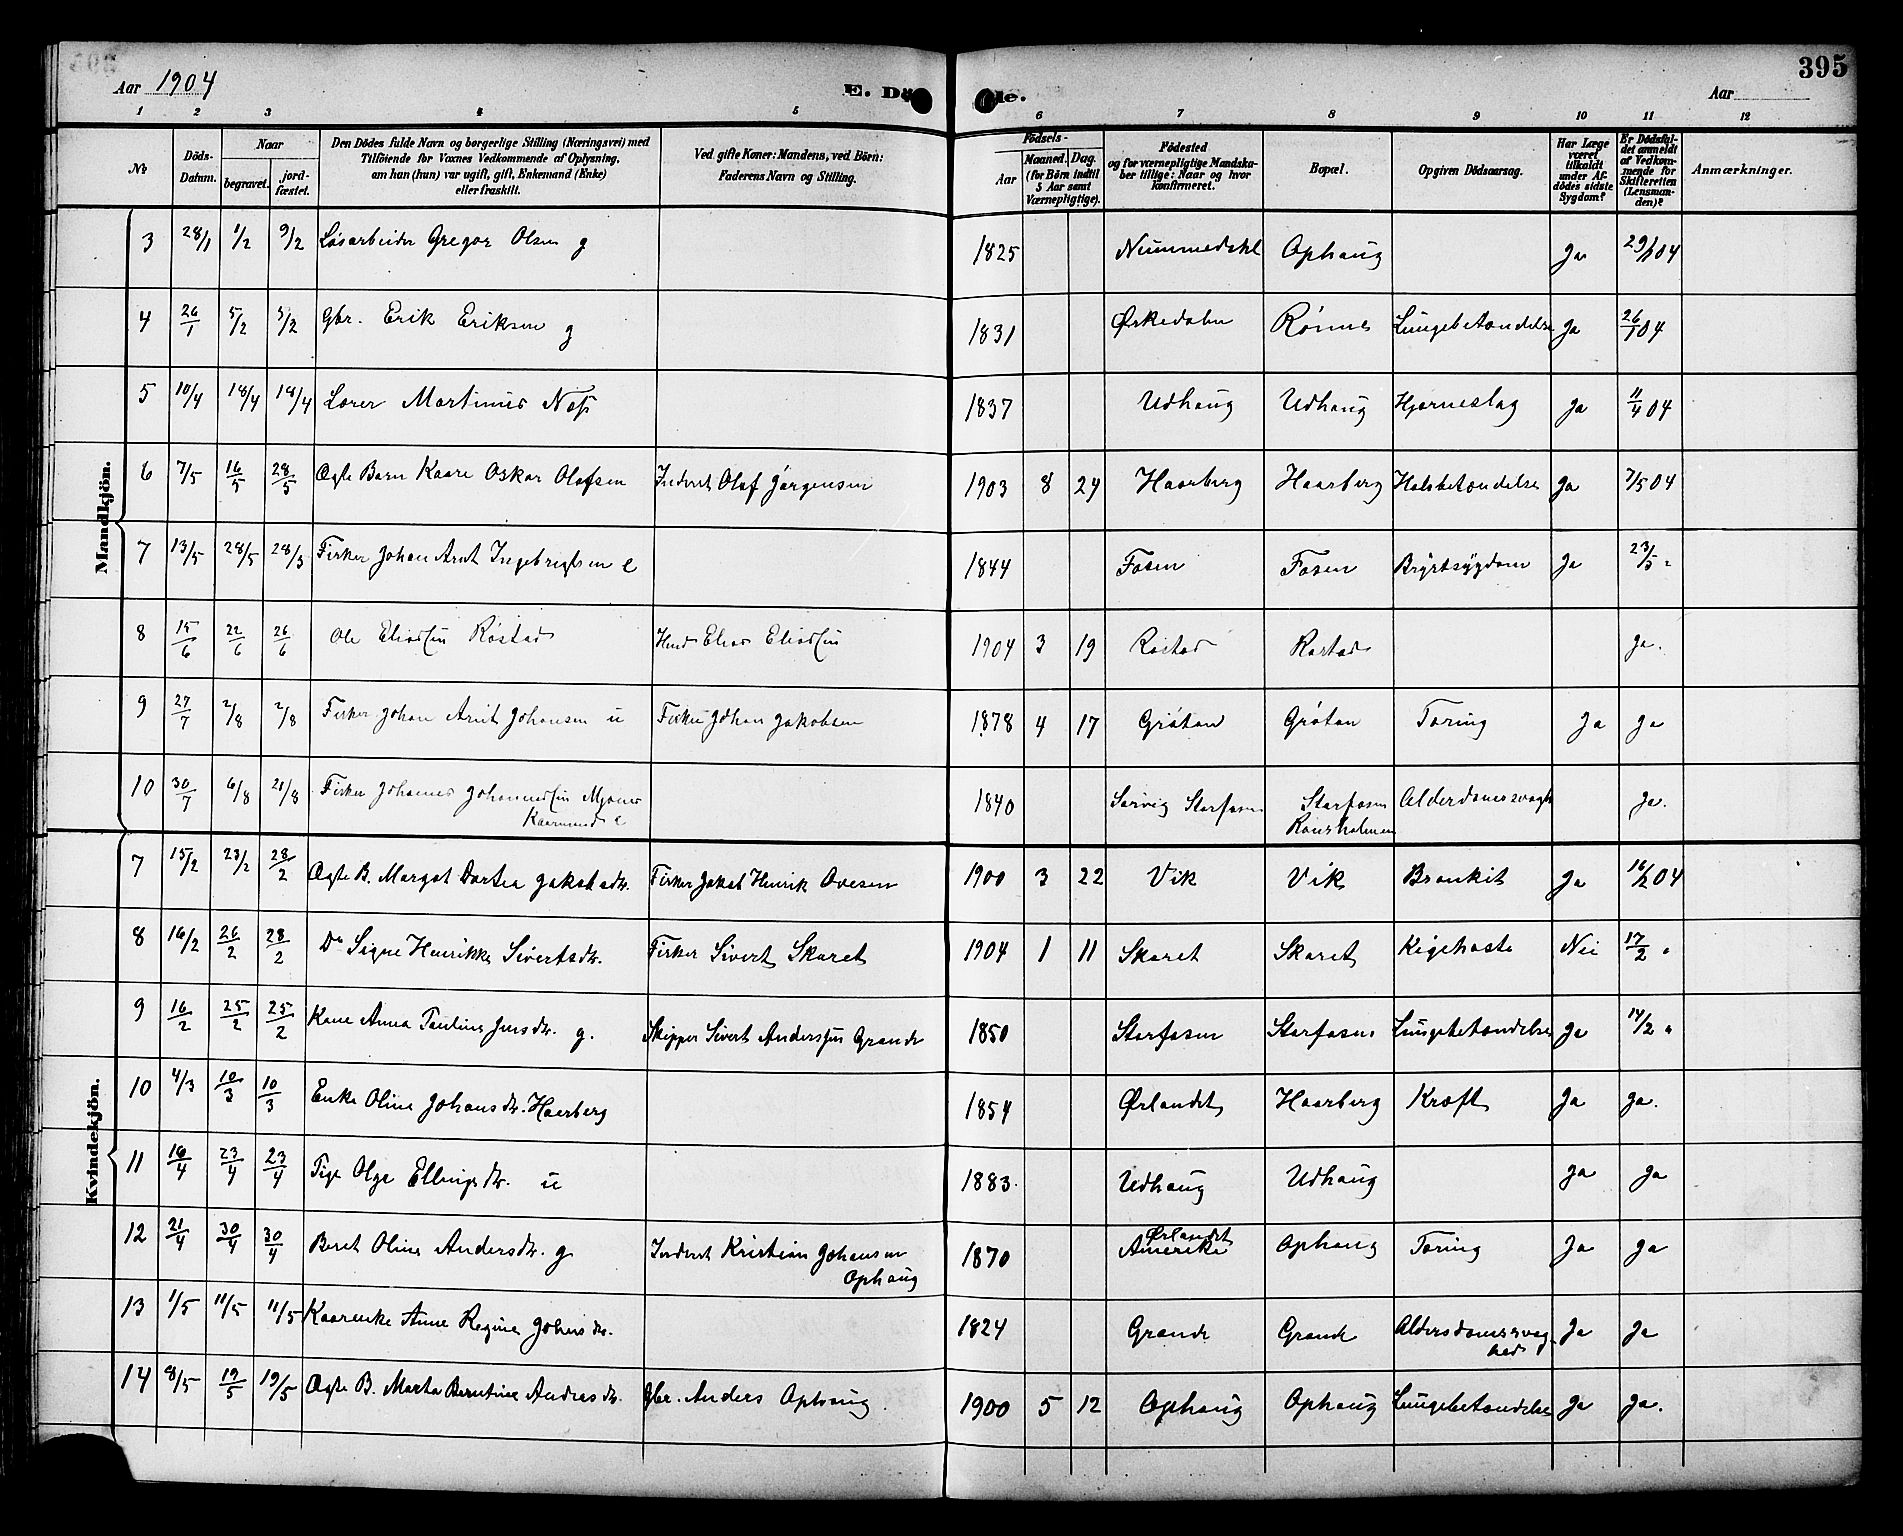 395
Aar 1904
E. Dö
de.
Aar
1 2 3 4 5 6 7 8 9 10 11 12
No
Döds-Datum.
Naar
begravet.
jord-fæstet.
Den Dödes fulde Navn og borgerlige Stilling (Næringsvei) med
Tilföiende for Voxnes Vedkommende af Oplysning,
om han (hun) var ugift, gift, Enkemand (Enke)
eller fraskilt.
Ved gifte Koner: Mandens, ved Börn:
Faderens Navn og Stilling.
Födsels-
Aar
Maaned. Dag.
(for Börn indtil
5 Aar samt
Værnepligtige).
Födested
og for værnepligtige Mandska-
ber tillige: Naar og hvor
konfirmeret.
Bopæl.
Opgiven Dödsaarsag.
Har Læge
været
tilkaldt
under Af-
dödes sidste
Sygdom?
Er Dödsfal-
det anmeldt
af Vedkom-
mende for
Skifteretten
(Lensman-
den)?
Anmærkninger.
Mandkjön.
3 28/1 1/2 9/2 Løsarbeider Gregor Olsen g 1825 Nummedahl Ophaug Ja 29/1 04
4 26/1 5/2 5/2 Gbr. Erik Eriksen g 1831 Ørkedalen Rønne Lungebetændelse Ja 26/1 04
5 10/4 18/4 18/4 Martinus 1837 Udhaug Udhaug Hjerneslag Ja 11/4 04
6 7/5 16/5 28/5 Ægte Barn Kaare Oskar Olafsen Inderst Olaf Jørgensen 1903 8 24 Haarberg Haarberg Halsbetændelse Ja 7/5 04
7 13/5 28/5 28/5 Fisker Johan Arnt Ingebrigtsen e 1844 Fosen Fosen Brystsygdom Ja 23/5 "
8 15/6 22/6 26/6 Ole Eliassen Røstad Elias Eliassen 1904 3 19 Røstad Røstad Ja.
9 27/7 2/8 2/8 Fisker Johan Arnt Johansen u Fisker Johan Jakobsen 1878 4 17 Grøtan Grøtan Tæring Ja Ja
10 30/7 6/8 21/8 Fisker Johannes Johannessen
e 1840 Storfosen Storfosen Alderdomssvagh Ja.
Kvindekjön.
7 15/2 23/2 28/2 Ægte B. Margot Dortea Jakobsdtr. Fisker Jakob Henrik Ovesen 1900 3 22 Vik Vik Bronkit Ja 16/2 04
8 16/2 26/2 28/2 Do Signe Henrikke Sivertsdtr. Fisker Sivert Skaret 1904 1 11 Skaret Skaret Kighoste Nei 17/2 "
9 16/2 25/2 25/2 Kone Anna Pauline Jensdtr. g. Skipper Sivert Anderssen Grande 1850 Storfosen Storfosen Lungebetændelse Ja 14/2 "
10 4/3 10/3 10/3 Enke Oline Johansdtr. Haarberg 1854 Ørlandet Haarberg Kræft Ja Ja.
11 16/4 23/4 23/4 Pige Olga Ellingsdtr. u 1883 Udhaug Udhaug Ja Ja
12 21/4 30/4 30/4 Beret Oline Andersdtr. g Inderst Kristian Johansen
Ophaug 1870 Ørlandet
Amerika Ophaug Tæring Ja Ja
13 1/5 11/5 11/5 Anne Regine Johnsdtr. 1824 Grande Grande Alderdomssvag-
hed Ja Ja
14 8/5 19/5 19/5 Ægte B. Marta Berntine Andersdtr. Gbr. Anders Ophaug. 1900 5 12 Ophaug Ophaug Lungebetændelse Ja Ja.